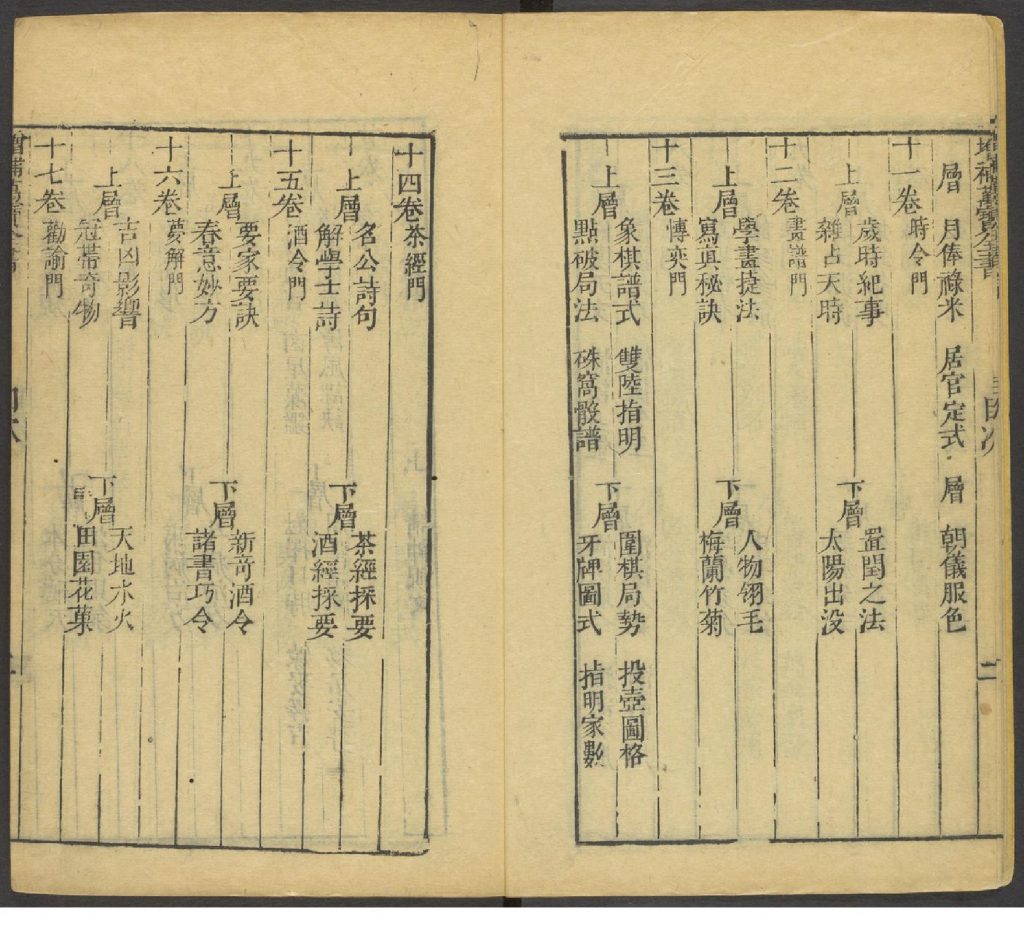 增補萬寶全書
目次
二
層 月俸祿米 居官定式 層 朝儀服色
十一卷 時令門
上層 歲時紀事 雜占天時 下層 置閏之法 太陽出没
十二卷 畫譜門
上層 學畫捷法 寫真秘訣 下層 人物翎毛 梅蘭竹菊
十三卷 博奕門
上層 象棋譜式 雙陸指明 點破局法 硃窩骰譜 下層 圍棋局勢 投壺圖格 牙牌圖式 指明家數
十四卷 茶經門
上層 名公詩句 解學士詩 下層 茶經採要 酒經採要
十五卷 酒令門
上層 要家要訣 春意妙方 下層 新奇酒令 諸書巧令
十六卷 夢解門
上層 吉凶影響 冠帶奇物 下層 天地水火 田園花菓
十七卷 勸諭門